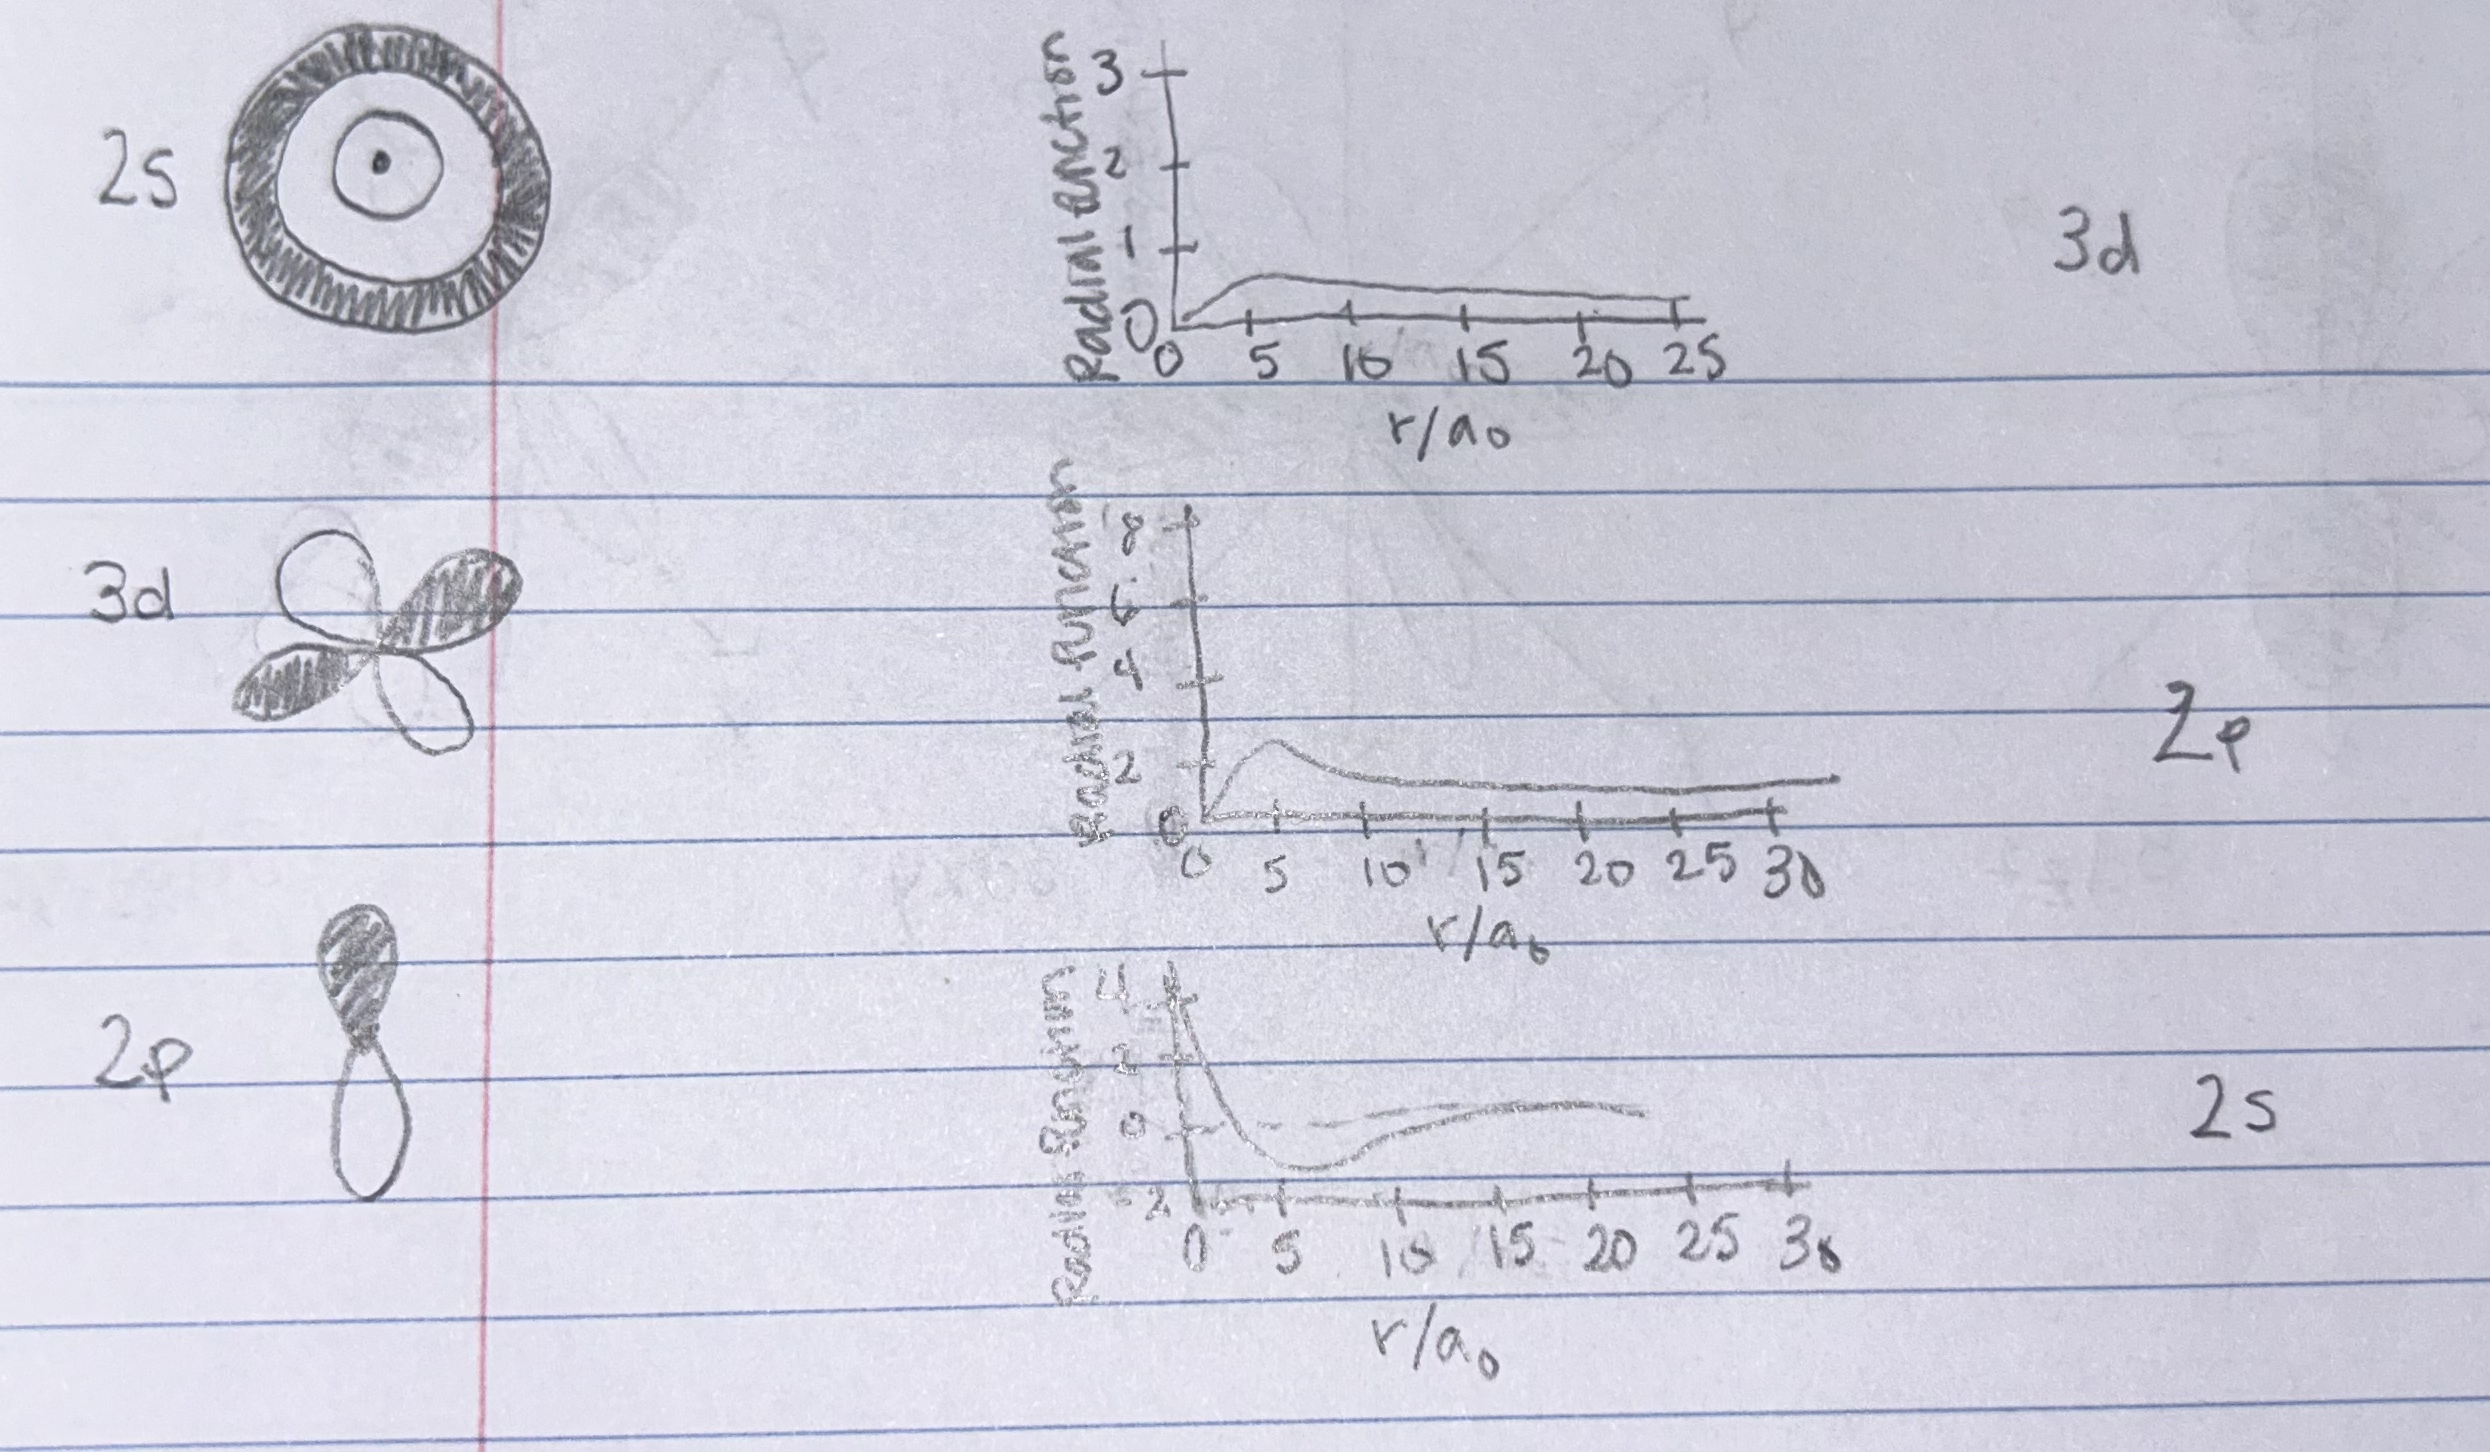 2s
Radial function
3
2
1
0
0 5 10 15 20 25
r/a₀
3d
3d
Radial function
8
6
4
2
0
0 5 10 15 20 25 30
r/a₀
2p
2p
Radial function
4
2
0
-2
0 5 10 15 20 25 30
r/a₀
2s